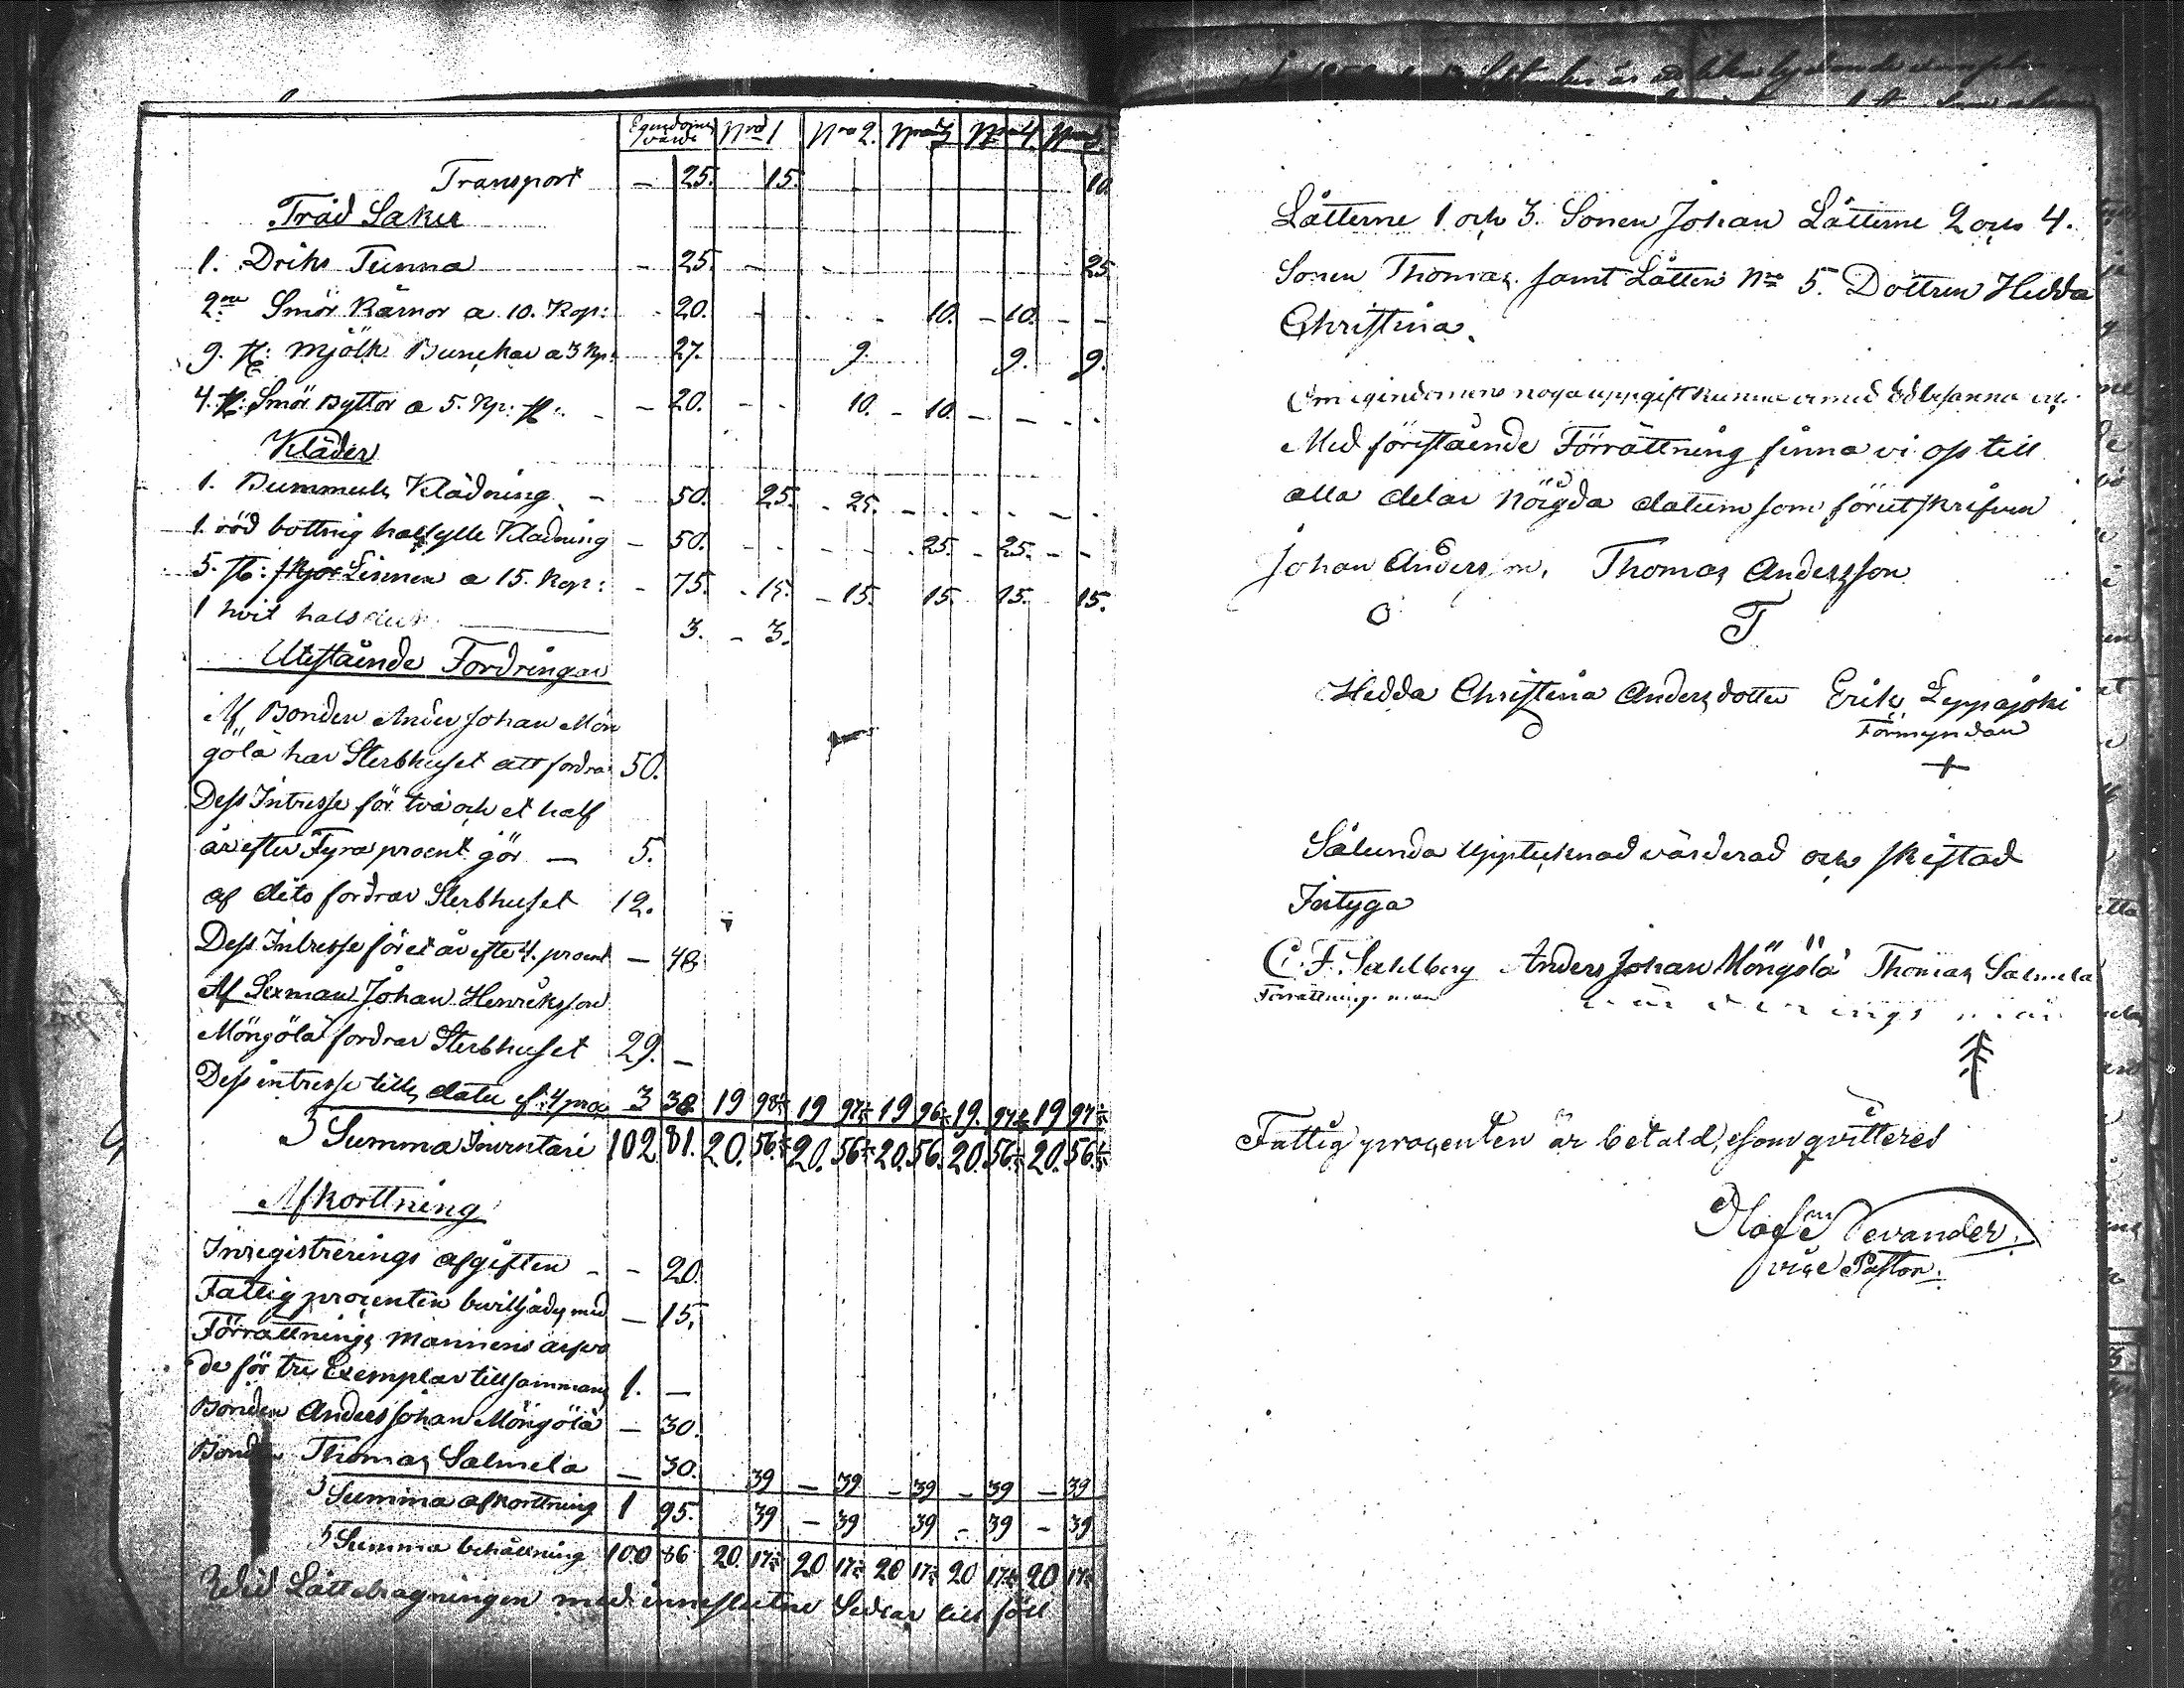 Egendoms värde Nro 1 Nro 2. Nro 3 Nro 4. Nro 5.
Transport — 25. 15. 10
Träd Saker
1. Driks Tunna - 25. - 25
2ne Smör Kärnor a 10. Kop: - 20. - 10. - 10. - -
9. st: Mjölk Bunckar a 3 Kp: 27. 9. 9. 9.
4. st: Smör Byttor a 5. Kp: st: - 20. - 10. - 10. - - -
Kläder
1. Bummuls Klädning - 50. 25. - 25. - - - -
1. röd bottnig halfylle Klädning - 50. - - 25. - 25. - -
5. st: skjor Linnen a 15. Kop: - 75. - 15. - 15. 15. 15. 15.
1 hvit halsduk 3. - 3.
Utestående Fordringar
Af Bonden Anders Johan Mön
gölä har Sterbhuset att fordra 50.
Dess Intresse för två och et half
år efter Fyra procent gör — 5.
af dito fordrar Sterbhuset 12.
Dess Intresse för et år efter 4. procent — 48
Af Sexman Johan Henriksson
Möngölä fordrar Sterbhuset 29. —
Dess intresse till datu ef. 4 pro 3 38 19 98 19 97 19 96 19. 97 19 97
Summa Inventari 102 81. 20. 56 20. 56 20. 56. 20. 56 20. 56
Afkorttning
Inregistrerings afgiften - - 20.
Fattig procenten beviljades med — 15.
Förrättnings Mannens arfvo
de för tre Exemplar tillsammans 1. —
Bonden Anders Johan Möngölä — 30.
Bonden Thomas Salmela — 30. 39 — 39 — 39 — 39 — 39
Summa afkorttning 1 95. 39 — 39 39 - 39 - 39
Summa behållning 100 86 20. 17 20 17 20 17 20 17 20 17
Wid Låttdragningen med inneslutne Sedlar till föll
Låtterne 1 och 3. Sonen Johan Låtterne 2 och 4.
Sonen Thomas samt Låtten Nro 5. Dottren Hedda
Christina.
Om egendomens noga uppgift kunna vi med Ed besanna
Med förestående Förrättning finna vi os till
alla delar nöigda datum som förut skrifven
Johan Andersson, Thomas Andersson
T
Hedda Christina Andersdotter Erik Leppajoki
Förmyndare
Sålunda upptecknad värderad och skiftad
Intyga
C. F. Sahlberg Anders Johan Möngölä Thomas Salmela
Förrättnings man värderings män
Fattig procenten är betald, som qvitteres
Olof Levander
vice Pastor.